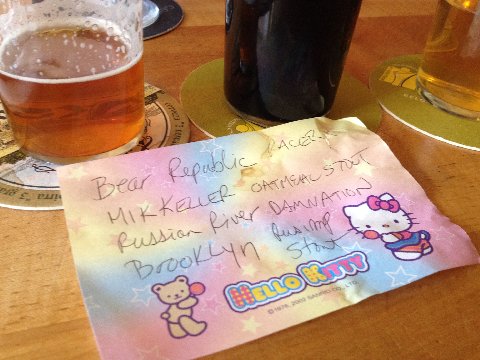 Bear Republic RACER 5
MIKKELLER OATMEAL STOUT
Russian River DAMNATION
BROOKLYN
Stout
HELLO KITTY
© 1976, 2002 SANRIO CO., LTD.